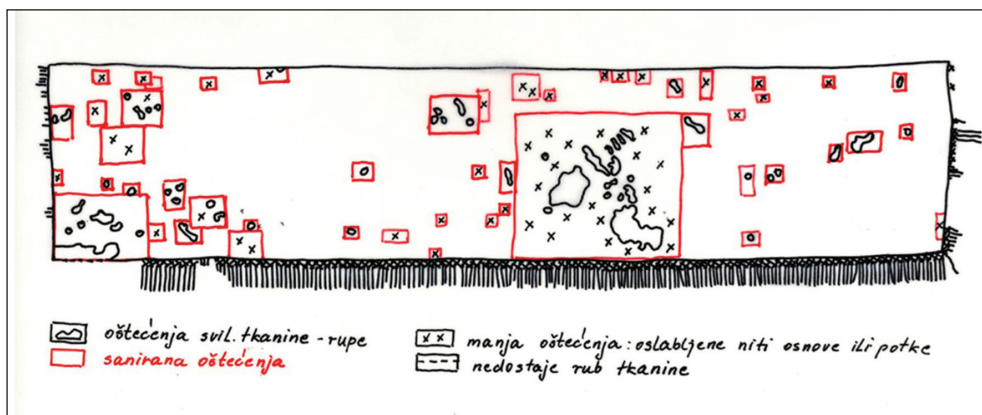 oštećenja svil. tkanine - rupe
sanirana oštećenja
manja oštećenja: oslabljene niti osnove ili potke
nedostaje rub tkanine